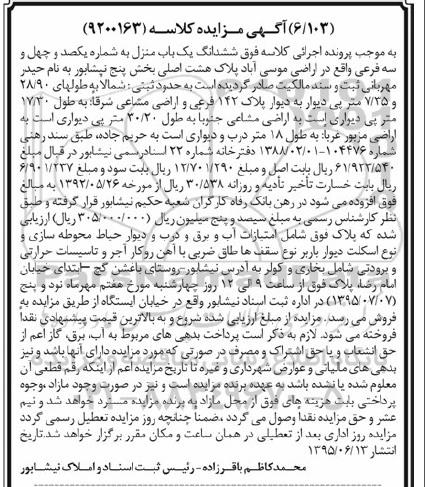 (۶/۱۰۳) آگهی مزایده کلاسه (۹۲۰۰۱۶۳)
به موجب پرونده اجرائی کلاسه فوق ششدانگ یک باب منزل به شماره یکصد و چهل و
سه فرعی واقع در اراضی موسی آباد پلاک هشت اصلی بخش پنج نیشابور به نام حیدر
مهربانی ثبت و سند مالکیت صادر گردیده است به حدود ثبتی: شمالا به طولهای ۲۸/۹۰
و ۷/۲۵ متر پی دیوار به دیوار پلاک ۱۴۲ فرعی و اراضی مشاعی شرقا: به طول ۱۷/۳۰
متر پی دیواری است به اراضی مشاعی جنوبا به طول ۳۰/۲۰ متر پی دیواری است به
اراضی مزبور غربا: به طول ۱۸ متر درب و دیواری است به حریم جاده، طبق سند رهنی
شماره ۱۰۴۴۷۶-۱۳۸۸/۰۲/۰۱ دفترخانه شماره ۲۲ اسناد رسمی نیشابور در قبال مبلغ
۶۱/۹۲۳/۵۴۰ ریال بابت اصل و مبلغ ۱۲/۷۰۱/۲۹۰ ریال بابت سود و مبلغ ۶/۹۰۱/۲۳۷
ریال بابت خسارت تأخیر تأدیه و روزانه ۳۰/۵۳۸ ریال از مورخه ۱۳۹۲/۰۵/۲۶ به مبالغ
فوق افزوده می شود در رهن بانک رفاه کارگران شعبه حکیم نیشابور قرار گرفته و طبق
نظر کارشناس رسمی به مبلغ سیصد و پنج میلیون ریال (۳۰۵/۰۰۰/۰۰۰ ریال) ارزیابی
شده که پلاک فوق شامل امتیازات آب و برق و درب و دیوار حیاط محوطه سازی و
نوع اسکلت دیوار باربر نوع سقف ها طاق ضربی با آهن روکار آجر و تاسیسات حرارتی
و برودتی شامل بخاری و کولر به آدرس نیشابور-روستای باغشن گچ -ابتدای خیابان
امام رضا، پلاک فوق از ساعت ۹ الی ۱۲ روز چهارشنبه مورخ هفتم مهرماه نود و پنج
(۱۳۹۵/۰۷/۰۷) در اداره ثبت اسناد نیشابور واقع در خیابان ایستگاه از طریق مزایده به
فروش می رسد. مزایده از مبلغ ارزیابی شده شروع و به بالاترین قیمت پیشنهادی نقدا
فروخته می شود. لازم به ذکر است پرداخت بدهی های مربوط به آب، برق، گاز اعم از
حق انشعاب و یا حق اشتراک و مصرف در صورتی که مورد مزایده دارای آنها باشد و نیز
بدهی های مالیاتی و عوارض شهرداری و غیره تا تاریخ مزایده اعم از اینکه رقم قطعی آن
معلوم شده یا نشده باشد به عهده برنده مزایده است و نیز در صورت وجود مازاد ،وجوه
پرداختی بابت هزینه های فوق از محل مازاد به برنده مزایده مسترد خواهد شد و نیم
عشر و حق مزایده نقدا وصول می گردد ،ضمنا چنانچه روز مزایده تعطیل رسمی گردد
مزایده روز اداری بعد از تعطیلی در همان ساعت و مکان مقرر برگزار خواهد شد.تاریخ
انتشار ۱۳۹۵/۰۶/۱۳
محمدکاظم باقرزاده - رئیس ثبت اسناد و املاک نیشابور